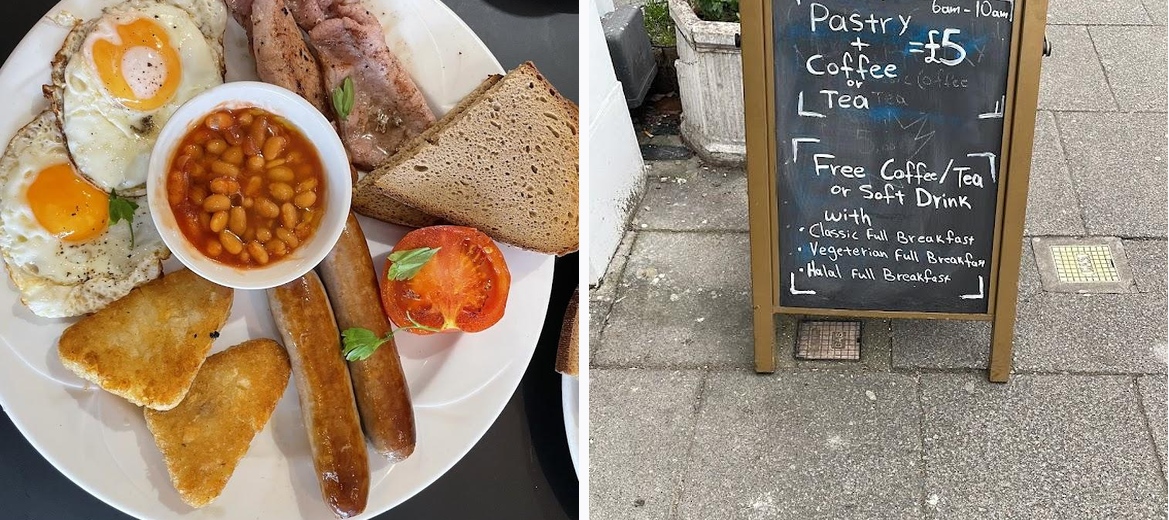 6am - 10am
Pastry
+
Coffee =£5
or
Tea
Free Coffee/Tea
or Soft Drink
with
• Classic Full Breakfast
• Vegeterian Full Breakfast
• Halal Full Breakfast